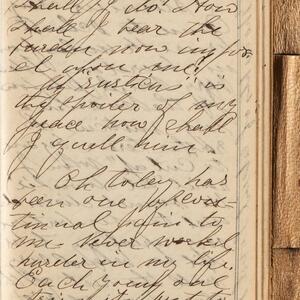 shall I do! How
shall I bear the
burden now impos
ed upon me!
"is
the spoiler of my
peace how shall
I quell him
Oh today has
been one of con
tinual pain to
me. Never worked
harder in my life.
Each young one